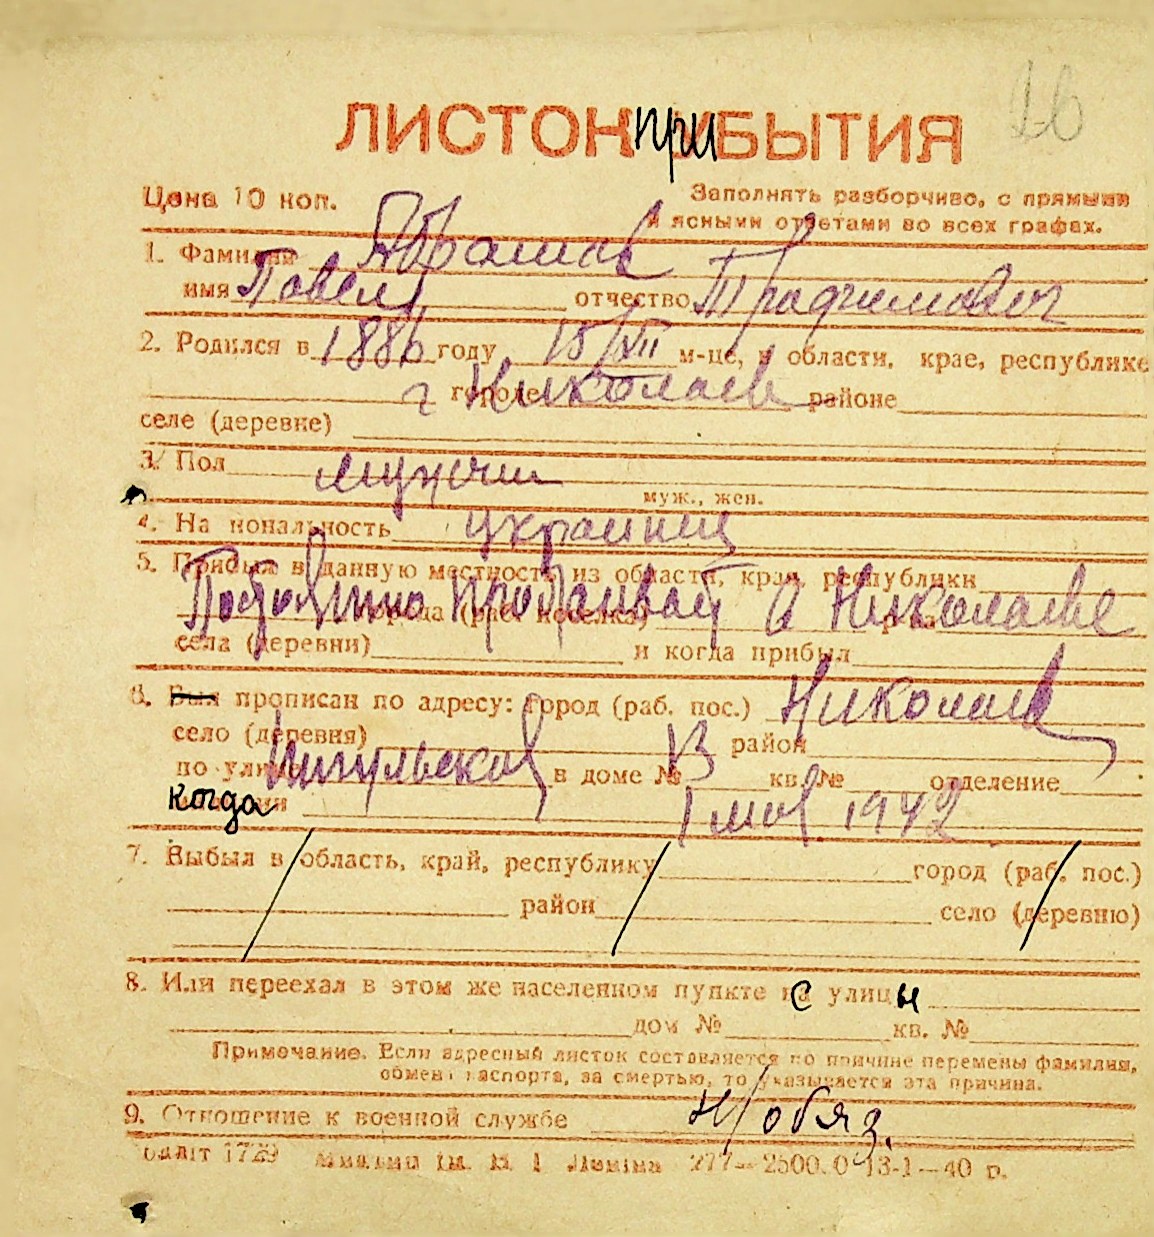 26
ЛИСТОК при БЫТИЯ
Цена 10 коп. Заполнять разборчиво, с прямыми
и ясными ответами во всех графах.
1. Фамилия Абрамов
имя Павел отчество Трафимович
2. Родился в 1886 году 15/XII м-це, в области, крае, республике
г городе Николаев районе
селе (деревне)
3. Пол мужчин
муж., жен.
4. Национальность украинец
5. Прибыл в данную местность из области, края, республики
Постоянно проживает в Николаеве
города (раб. поселка) р-на
села (деревни) и когда прибыл
6. Был прописан по адресу: город (раб. пос.) Николаев
село (деревня) район
по улице Ингульской в доме № 13 кв. № отделение
когда милиции 1 мая 1942
7. Выбыл в область, край, республику город (раб. пос.)
район село (деревню)
8. Или переехал в этом же населенном пункте с улицы
дом № кв. №
Примечание. Если адресный листок составляется по причине перемены фамилии,
обмена паспорта, за смертью, то указывается эта причина.
9. Отношение к военной службе н/обяз.
1729 ім. В. І Леніна 277—2500.0 13-1—40 р.